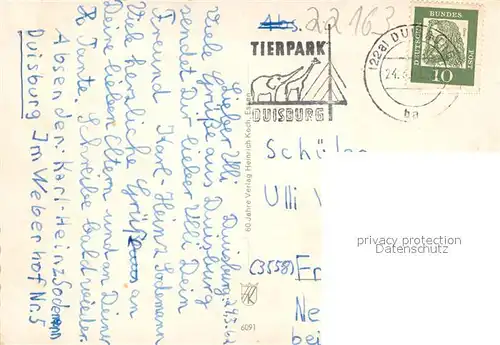 Duisburg, 24.5.62
Lieber Ulli
Viele Grüße aus Duisburg
sendet Dir lieber Ulli Dein
Freund Karl-Heinz Sodemann
Viele herzliche Grüße an
Deine lieben Eltern und an Deine
Tante. Schreibe bald wieder.
Absender: Karl-Heinz Sodemann
Duisburg Im Weberhof Nr. 5
60 Jahre Verlag Heinrich Koch, Essen
6091
Abs.
22 163
TIERPARK
DUISBURG
(22a) DU
24.
ba
DEUTSCHE
BUNDES
POST
10
Schüler
Ulli
(3558)
Ne
bei
privacy protection
Datenschutz